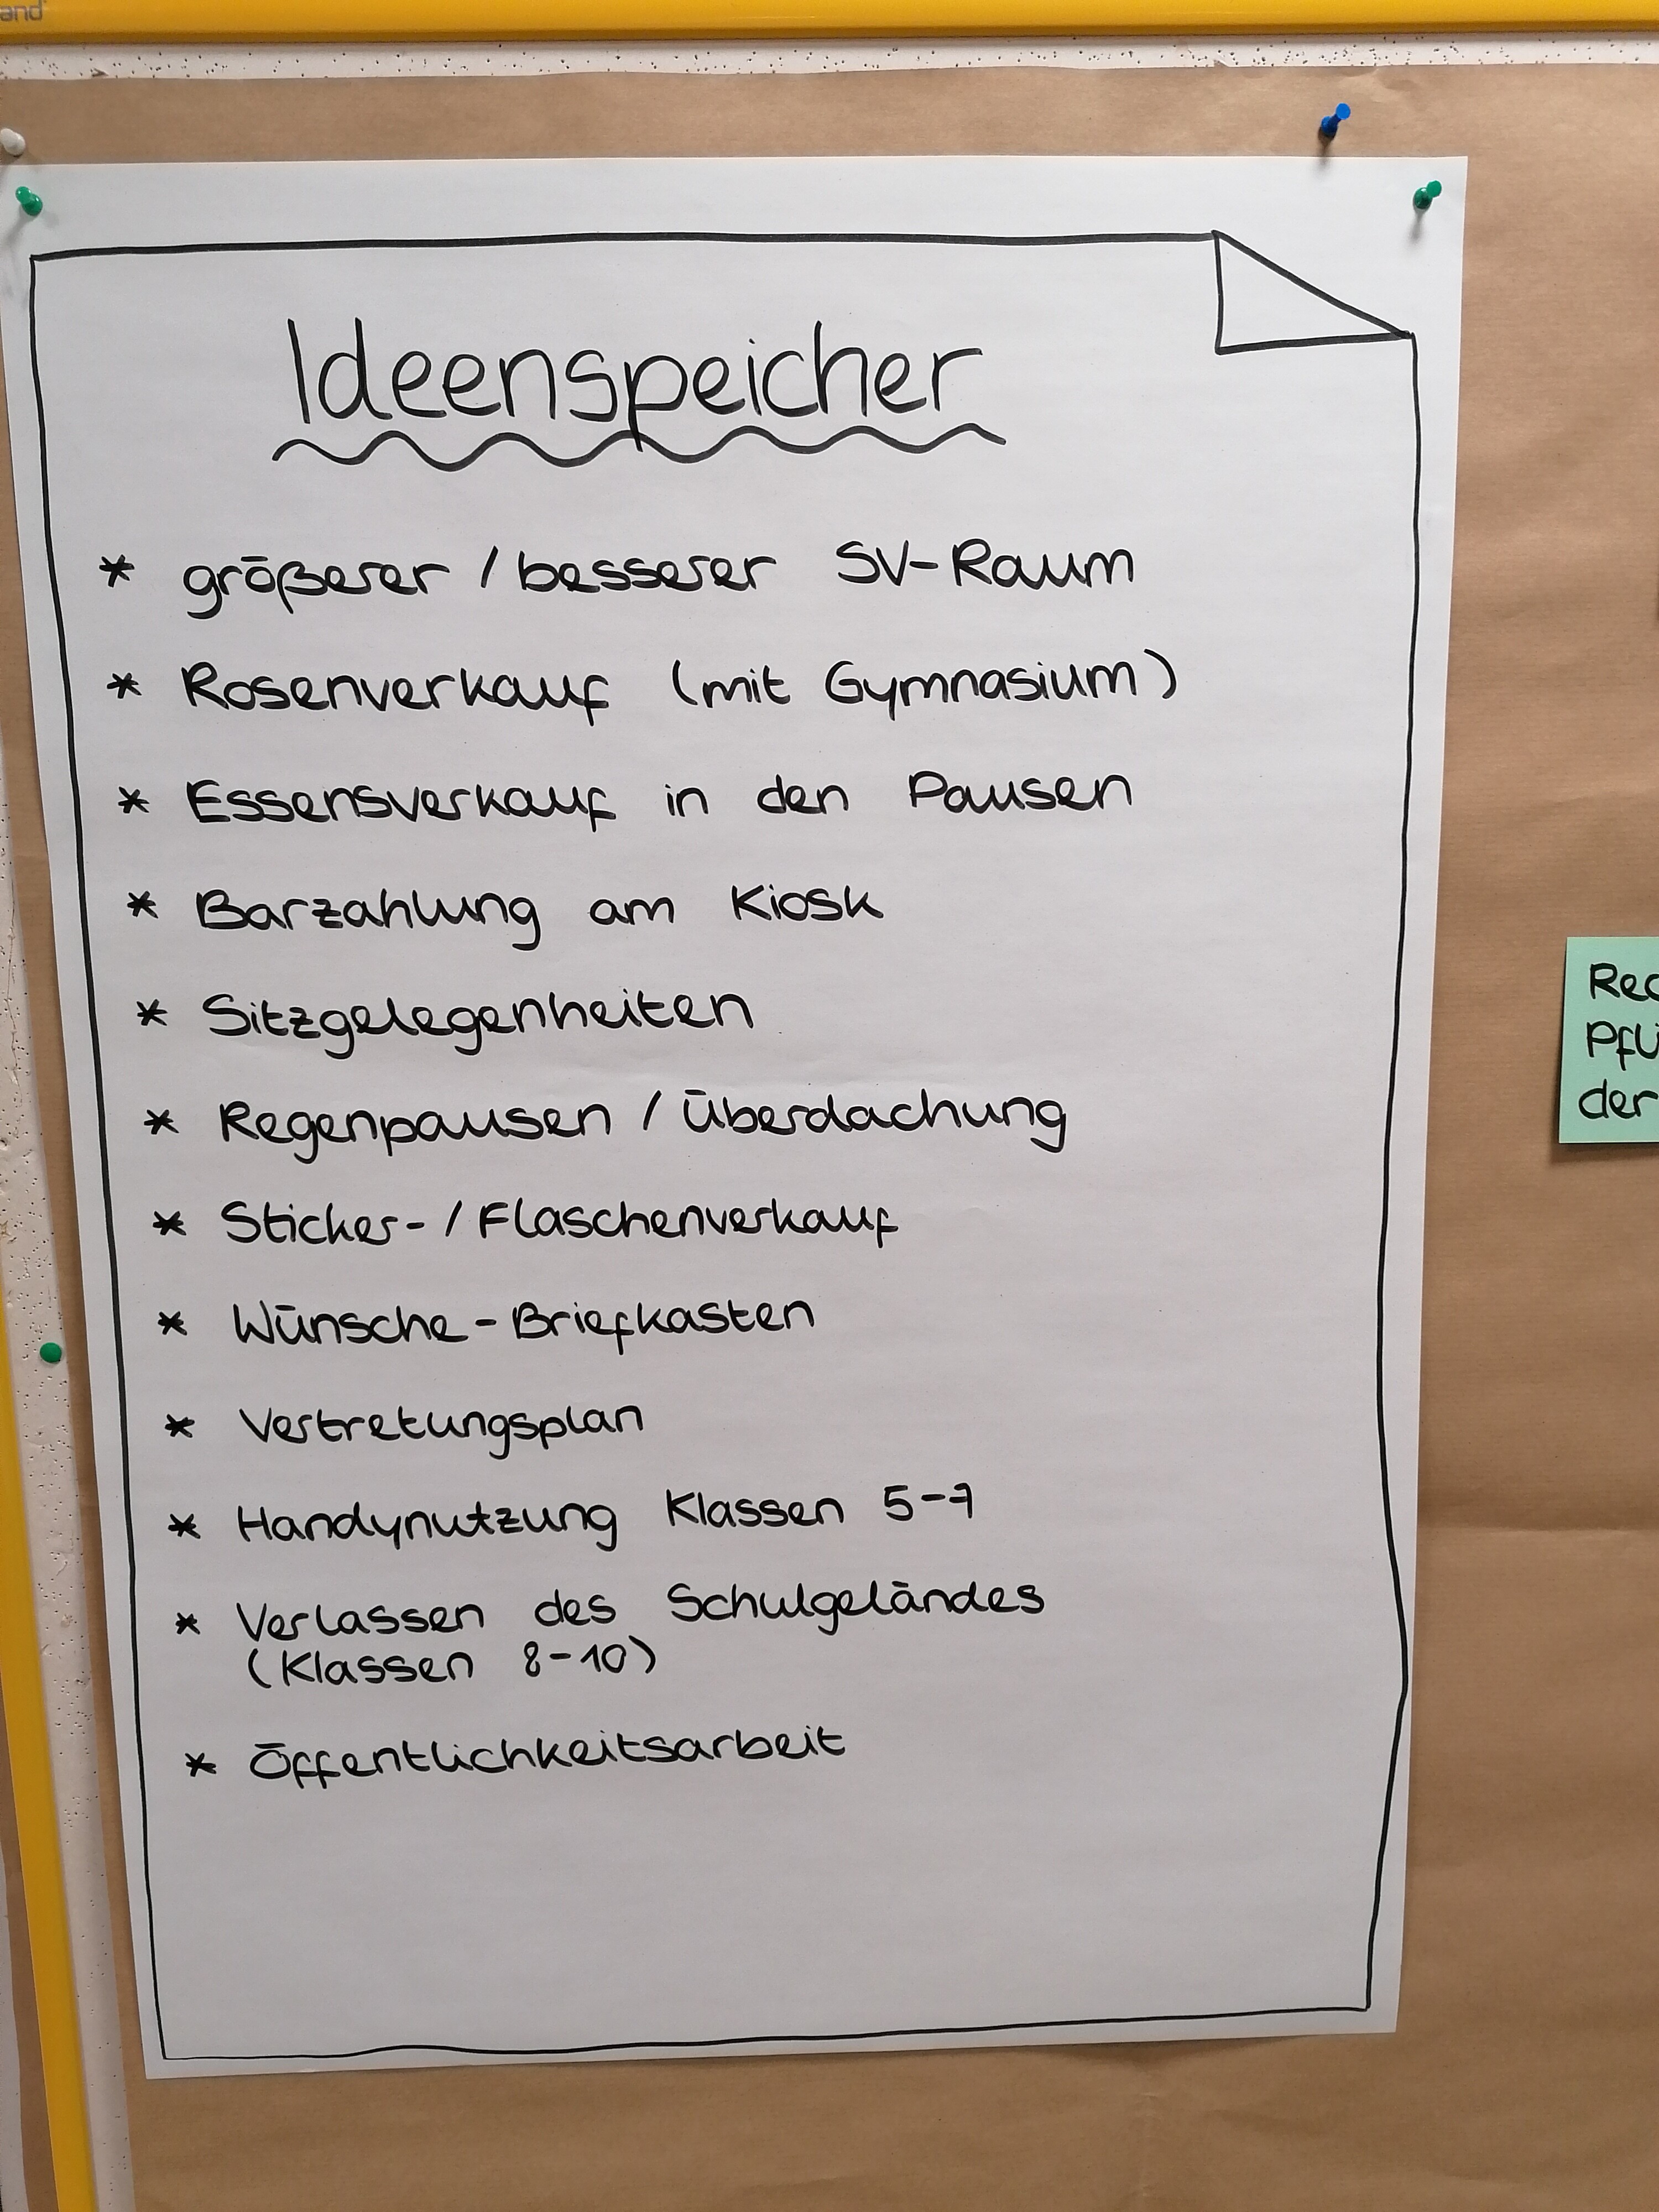 and
Ideenspeicher
* größerer / besserer SV-Raum
* Rosenverkauf (mit Gymnasium)
* Essensverkauf in den Pausen
* Barzahlung am Kiosk
* Sitzgelegenheiten
* Regenpausen / Überdachung
* Sticker- / Flaschenverkauf
* Wünsche-Briefkasten
* Vertretungsplan
* Handynutzung Klassen 5-7
* Verlassen des Schulgeländes
(Klassen 8-10)
* Öffentlichkeitsarbeit
der